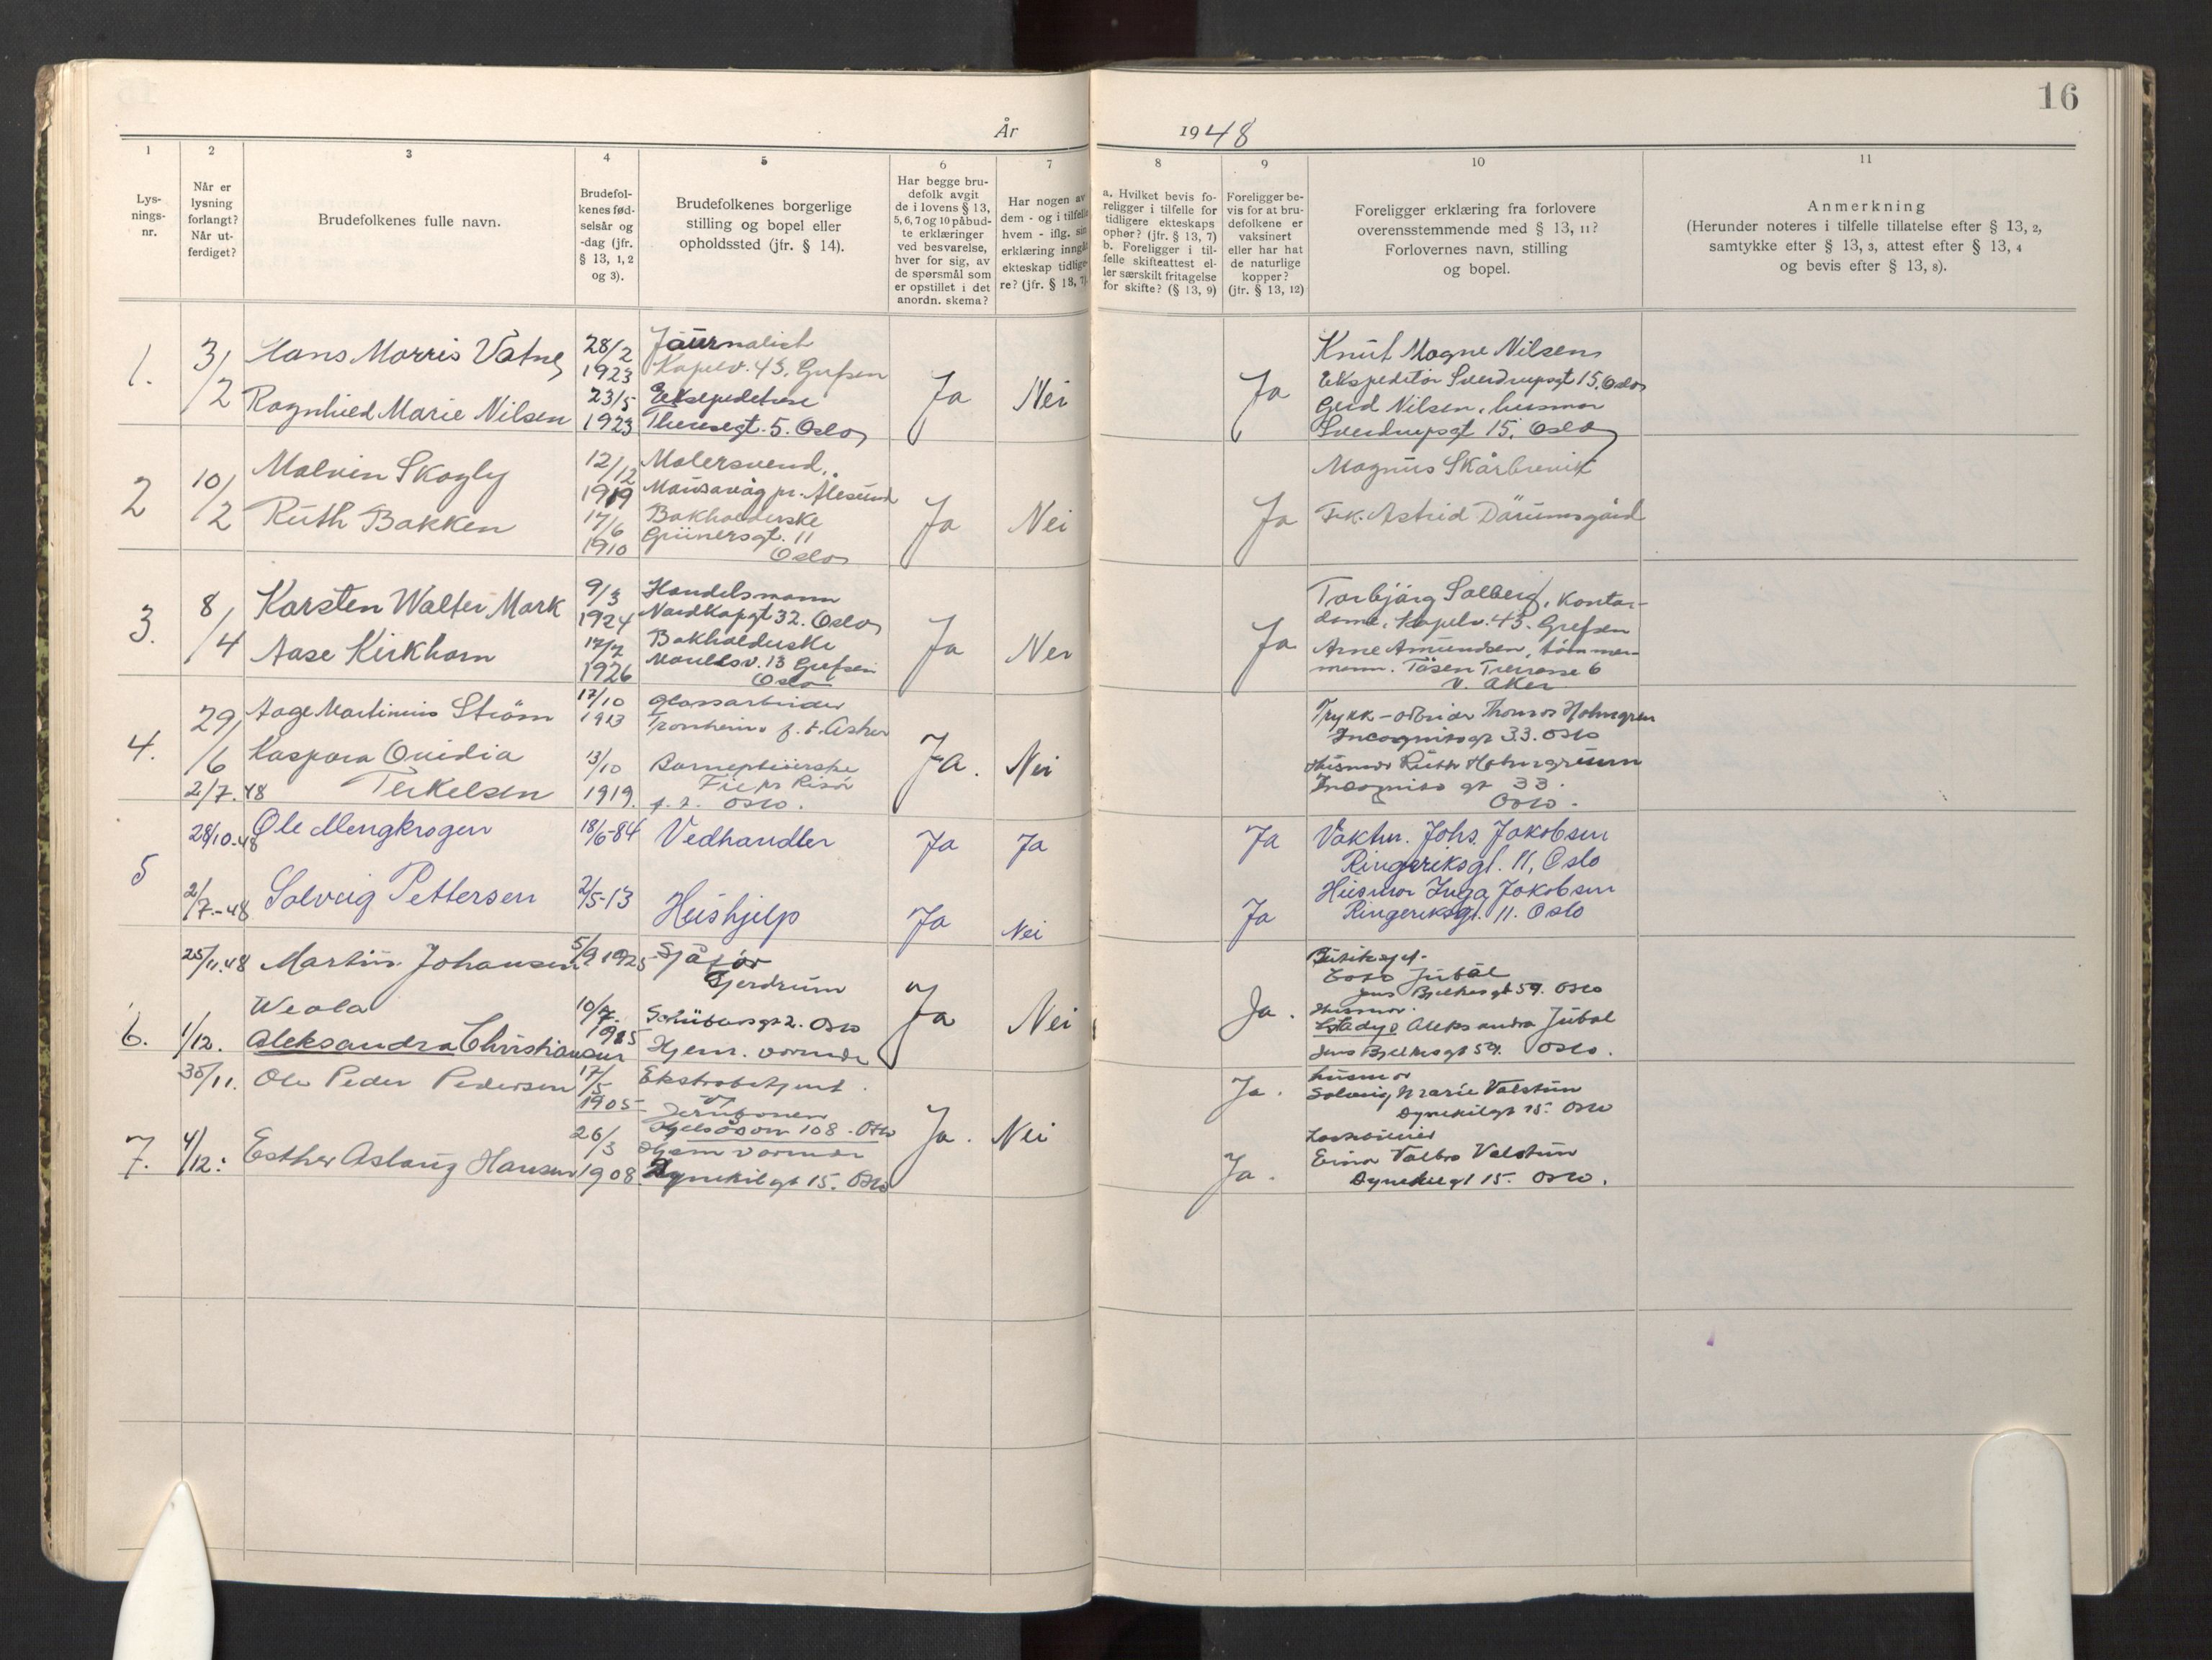 16
År 1948
1
2
3
4
5
6
7
8
9
10
11
Lys-
nings-
nr.
Når er
lysning
forlangt?
Når ut-
ferdiget?
Brudefolkenes fulle navn.
Brudefol-
kenes fød-
selsår og
-dag (jfr.
§ 13, 1, 2
og 3).
Brudefolkenes borgerlige
stilling og bopel eller
opholdssted (jfr. § 14).
Har begge bru-
defolk avgit
de i lovens § 13,
5, 6, 7 og 10 påbud-
te erklæringer
ved besvarelse,
hver for sig, av
de spørsmål som
er opstillet i det
anordn. skema?
Har nogen av
dem - og i tilfelle
hvem - iflg. sin
erklæring inngått
ekteskap tidlige-
re? (jfr. § 13, 7)
a. Hvilket bevis fo-
religger i tilfelle for
tidligere ekteskaps
ophør? (jfr. § 13, 7)
b. Foreligger i til-
felle skifteattest el-
ler særskilt fritagelse
for skifte? (§ 13, 9)
Foreligger be-
vis for at bru-
defolkene er
vaksinert
eller har hat
de naturlige
kopper?
(jfr. § 13, 12)
Foreligger erklæring fra forlovere
overensstemmende med § 13, 11?
Forlovernes navn, stilling
og bopel.
Anmerkning
(Herunder noteres i tilfelle tillatelse efter § 13, 2,
samtykke efter § 13, 3, attest efter § 13, 4
og bevis efter § 13, 8).
1.
3/2
Hans Morris Vatne
Ragnhild Marie Nilsen
28/2
1923
23/5
1923
Journalist
Kapelv. 43, Grefsen
Ekspeditrise
Theresegt. 5. Oslo
Ja
Nei
Ja
Knut Magne Nilsen
Ekspeditør Sverdrupsgt 15. Oslo
Gerd Nilsen, husmor
Sverdrupsgt 15. Oslo
2
10/2
Malvin Skogly
Ruth Bakken
12/12
1919
17/6
1910
Malersvend
Mausavåg pr. Ålesund
Bokholderske
Grünersgt. 11
Oslo
Ja
Nei
Ja
Magnus Skårbrevik
Frk. Astrid
3.
8/4
Karsten Walter Mork
Aase Kirkhorn
9/3
1924
17/7
1926
Handelsmann
Nordkapgt 32. Oslo
Bokholderske
13 Grefsen
Oslo
Ja
Nei
Ja
Torbjørg Solberg, Kontor-
dame, Kapelv. 43. Grefsen
Arne Amundsen, tømmer-
mann. Tåsen Terrasse 6
V. Aker
4.
29/6
2/7.48
Aage Martinius Strøm
Kaspara Ovidia
Terkelsen
17/10
1913
13/10
1919.
Glassarbeider
Tronheim f. t. Asker
Barnepleierske
Risør
f. t. Oslo.
Ja.
Nei
Trykk-arbeider Thomas Holmgren
Incognitogt 33. Oslo
Husmor Ruth Holmgreen
Incognito gt 33.
Oslo.
5
28/10.48
2/7.-48
Ole Mengkrogen
Solveig Pettersen
18/6-84
2/5-13
Vedhandler
Hushjelp
Ja
Ja
Ja
Nei
Ja
Ja
Vaktm. Johs. Jakobsen
Ringeriksgt. 11, Oslo
Husmor Inga Jakobsen
Ringeriksgt. 11. Oslo
6.
25/11.48
1/12.
Martin Johansen
Weola
Aleksandra Christiansen
5/9 1925
10/7.
1925
Sjåfør
Gjerdrum
Schübelersgt 2. Oslo
Hjem. værende
Ja
Nei
Ja.
Jubal
Jens Bjelkesgt 59. Oslo
Husmor.
Gladys Aleksandra Jubal
Jens Bjelkesgt 59. Oslo.
7.
30/11.
4/12.
Ole Peder Pedersen
Esther Aslaug Hansen
17/5
1905
26/3
1908.
Ekstrabetjent
v/ Jernbanen
108. Oslo
Hjem værende
Dynekilgt 15. Oslo
Ja.
Nei
Ja.
Ja.
husmor
Solveig Marie Valstun
Dynekilgt 15. Oslo
Einar Valbro Valstun
Dynekilgt 15. Oslo.